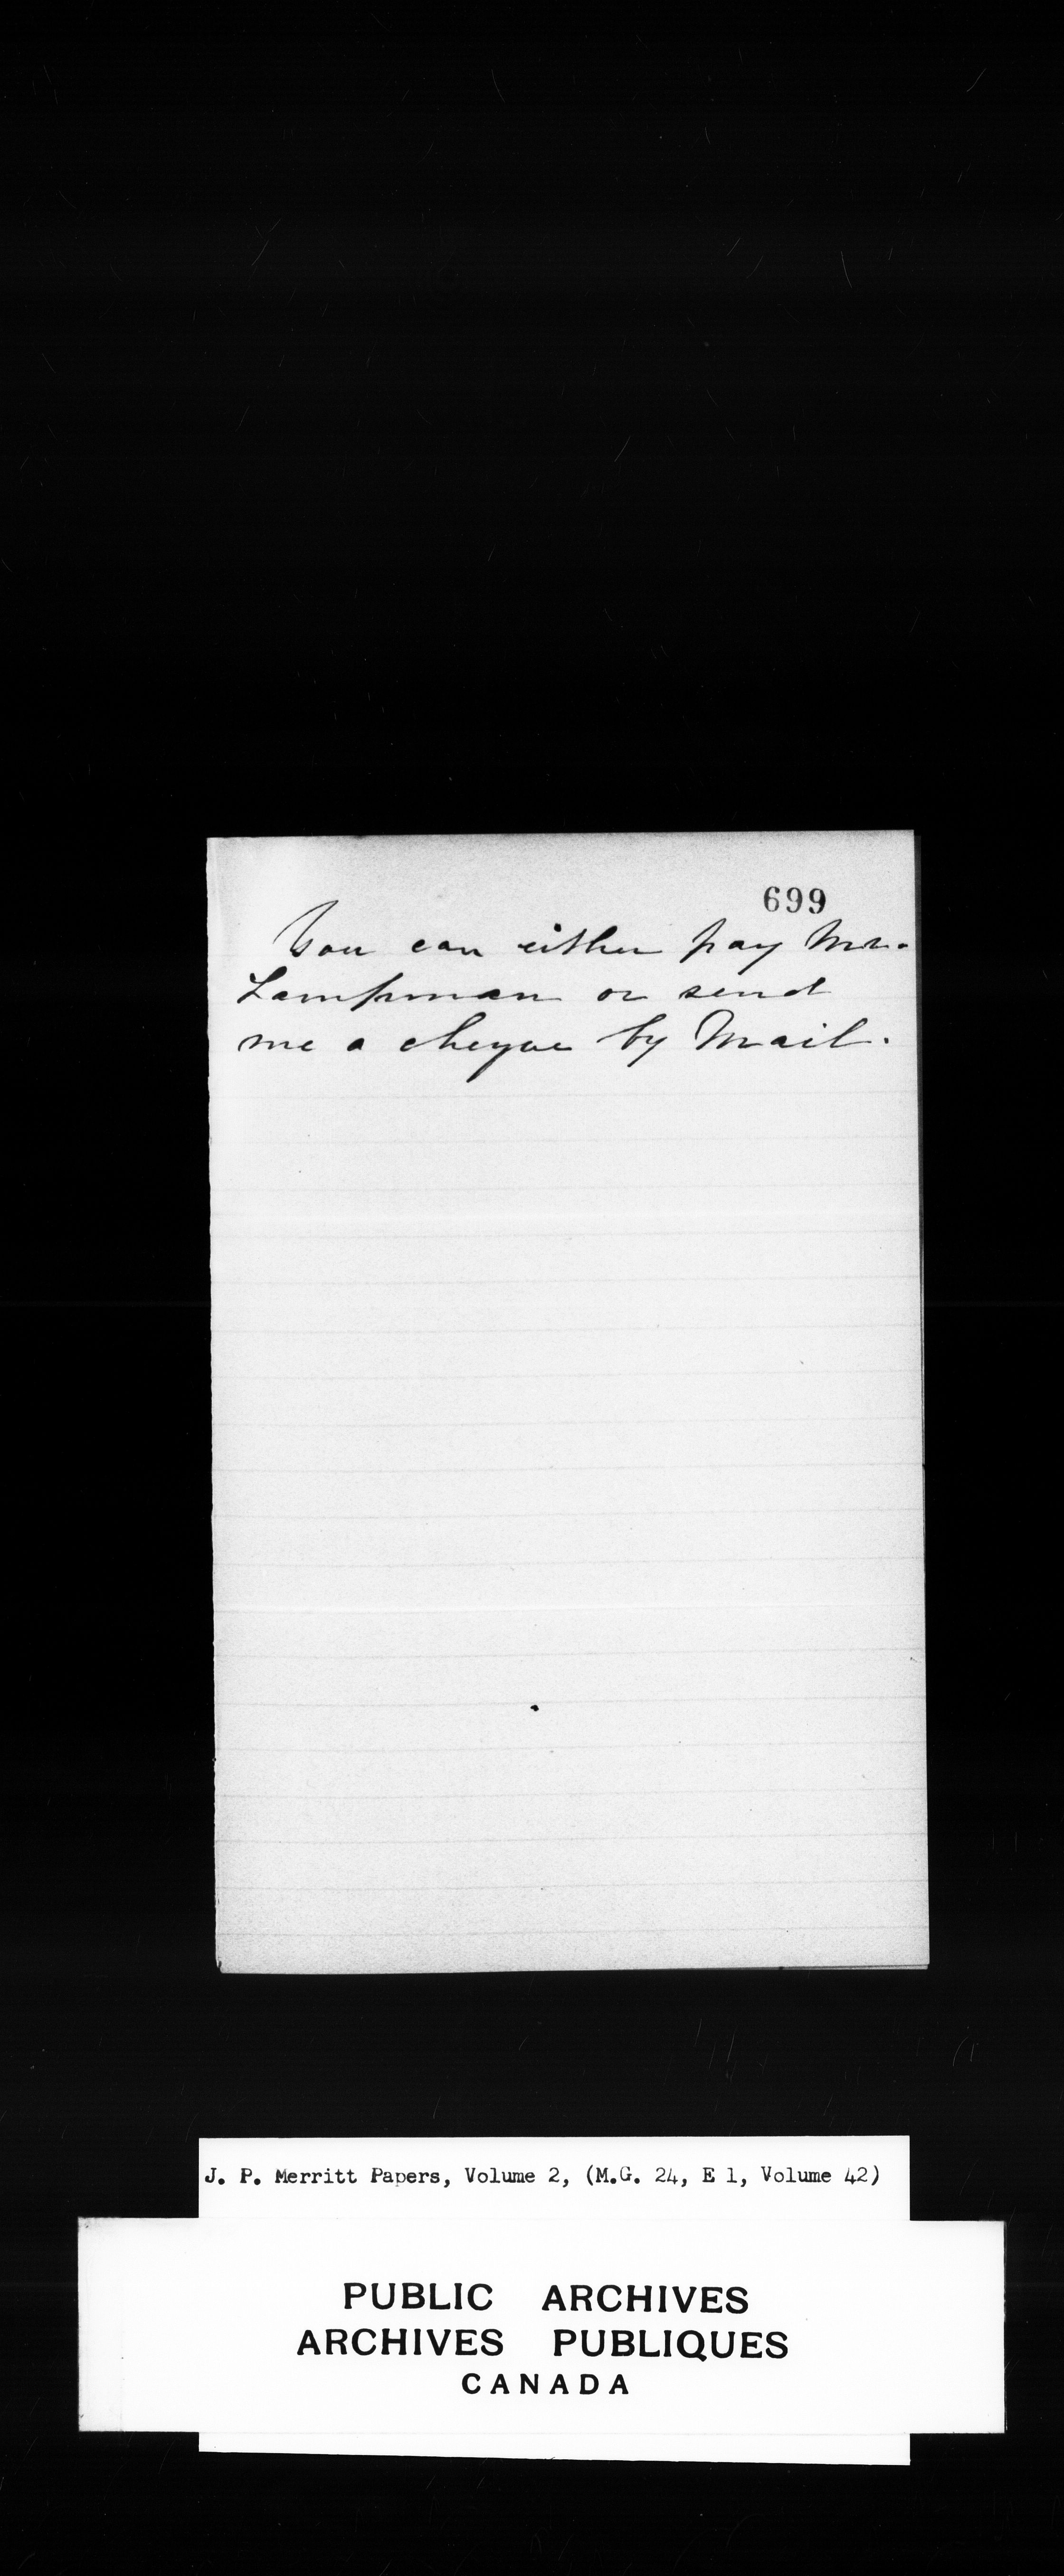 699
You can either pay Mr.
Lampman or send
me a cheque by Mail.
J. P. Merritt Papers, Volume 2, (M.G. 24, E 1, Volume 42)
PUBLIC ARCHIVES
ARCHIVES PUBLIQUES
CANADA